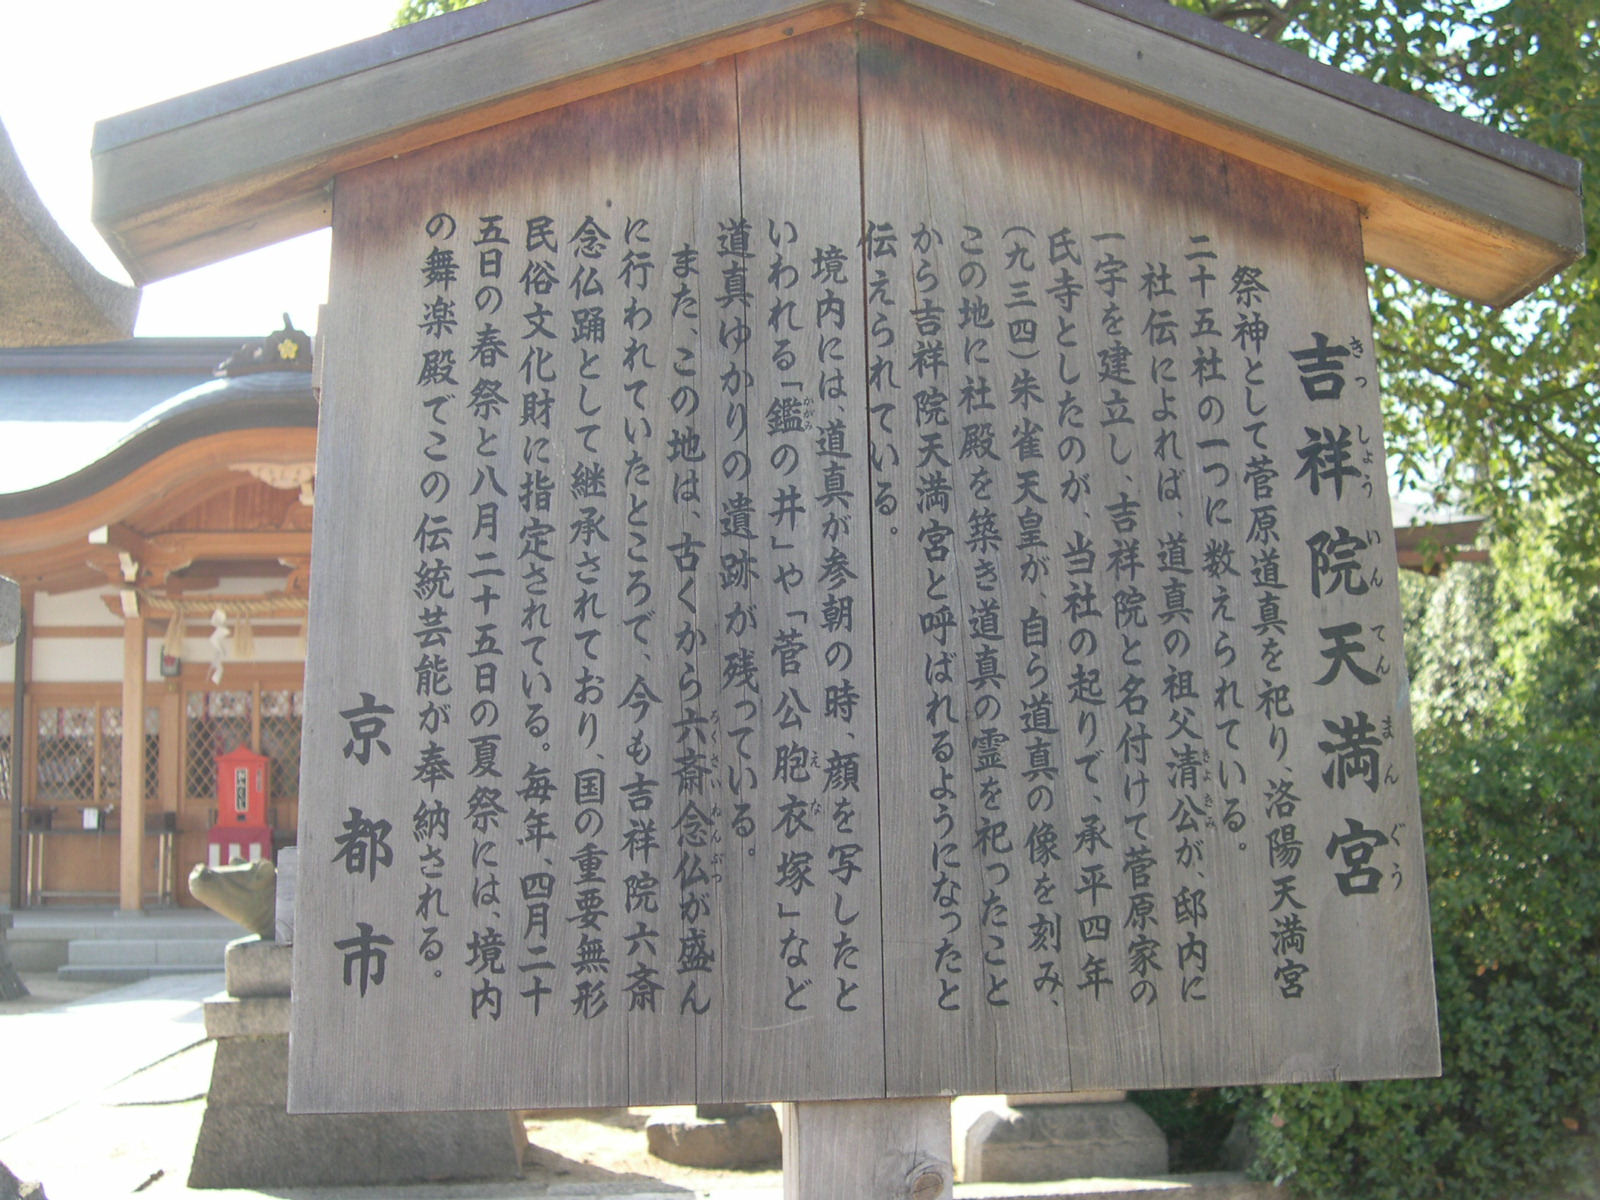 吉祥院天満宮
きっしょういんてんまんぐう
祭神として菅原道真を祀り、洛陽天満宮
二十五社の一つに数えられている。
社伝によれば、道真の祖父清公が、邸内に
きよきみ
一宇を建立し、吉祥院と名付けて菅原家の
氏寺としたのが、当社の起りで、承平四年
(九三四)朱雀天皇が、自ら道真の像を刻み、
この地に社殿を築き道真の霊を祀ったこと
から吉祥院天満宮と呼ばれるようになったと
伝えられている。
境内には、道真が参朝の時、顔を写したと
いわれる「鑑の井」や「菅公胞衣塚」など
かがみ
えな
道真ゆかりの遺跡が残っている。
また、この地は、古くから六斎念仏が盛ん
ろくさいねんぶつ
に行われていたところで、今も吉祥院六斎
念仏踊として継承されており、国の重要無形
民俗文化財に指定されている。毎年、四月二十
五日の春祭と八月二十五日の夏祭には、境内
の舞楽殿でこの伝統芸能が奉納される。
京都市